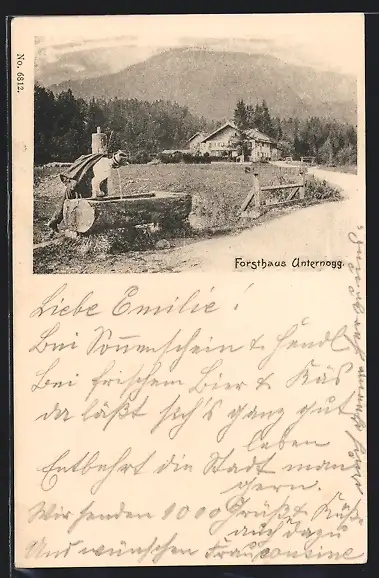 No. 6812.
Forsthaus Unternogg.
Liebe Emilie!
Bei Sonnenschein & Händl
Bei frischem Bier & Käs
da läßt sich's ganz gut
leben
Entbehrt die Stadt man
gern.
Wir senden 1000 Grüß & Küß
auch dazu
Und wünschen